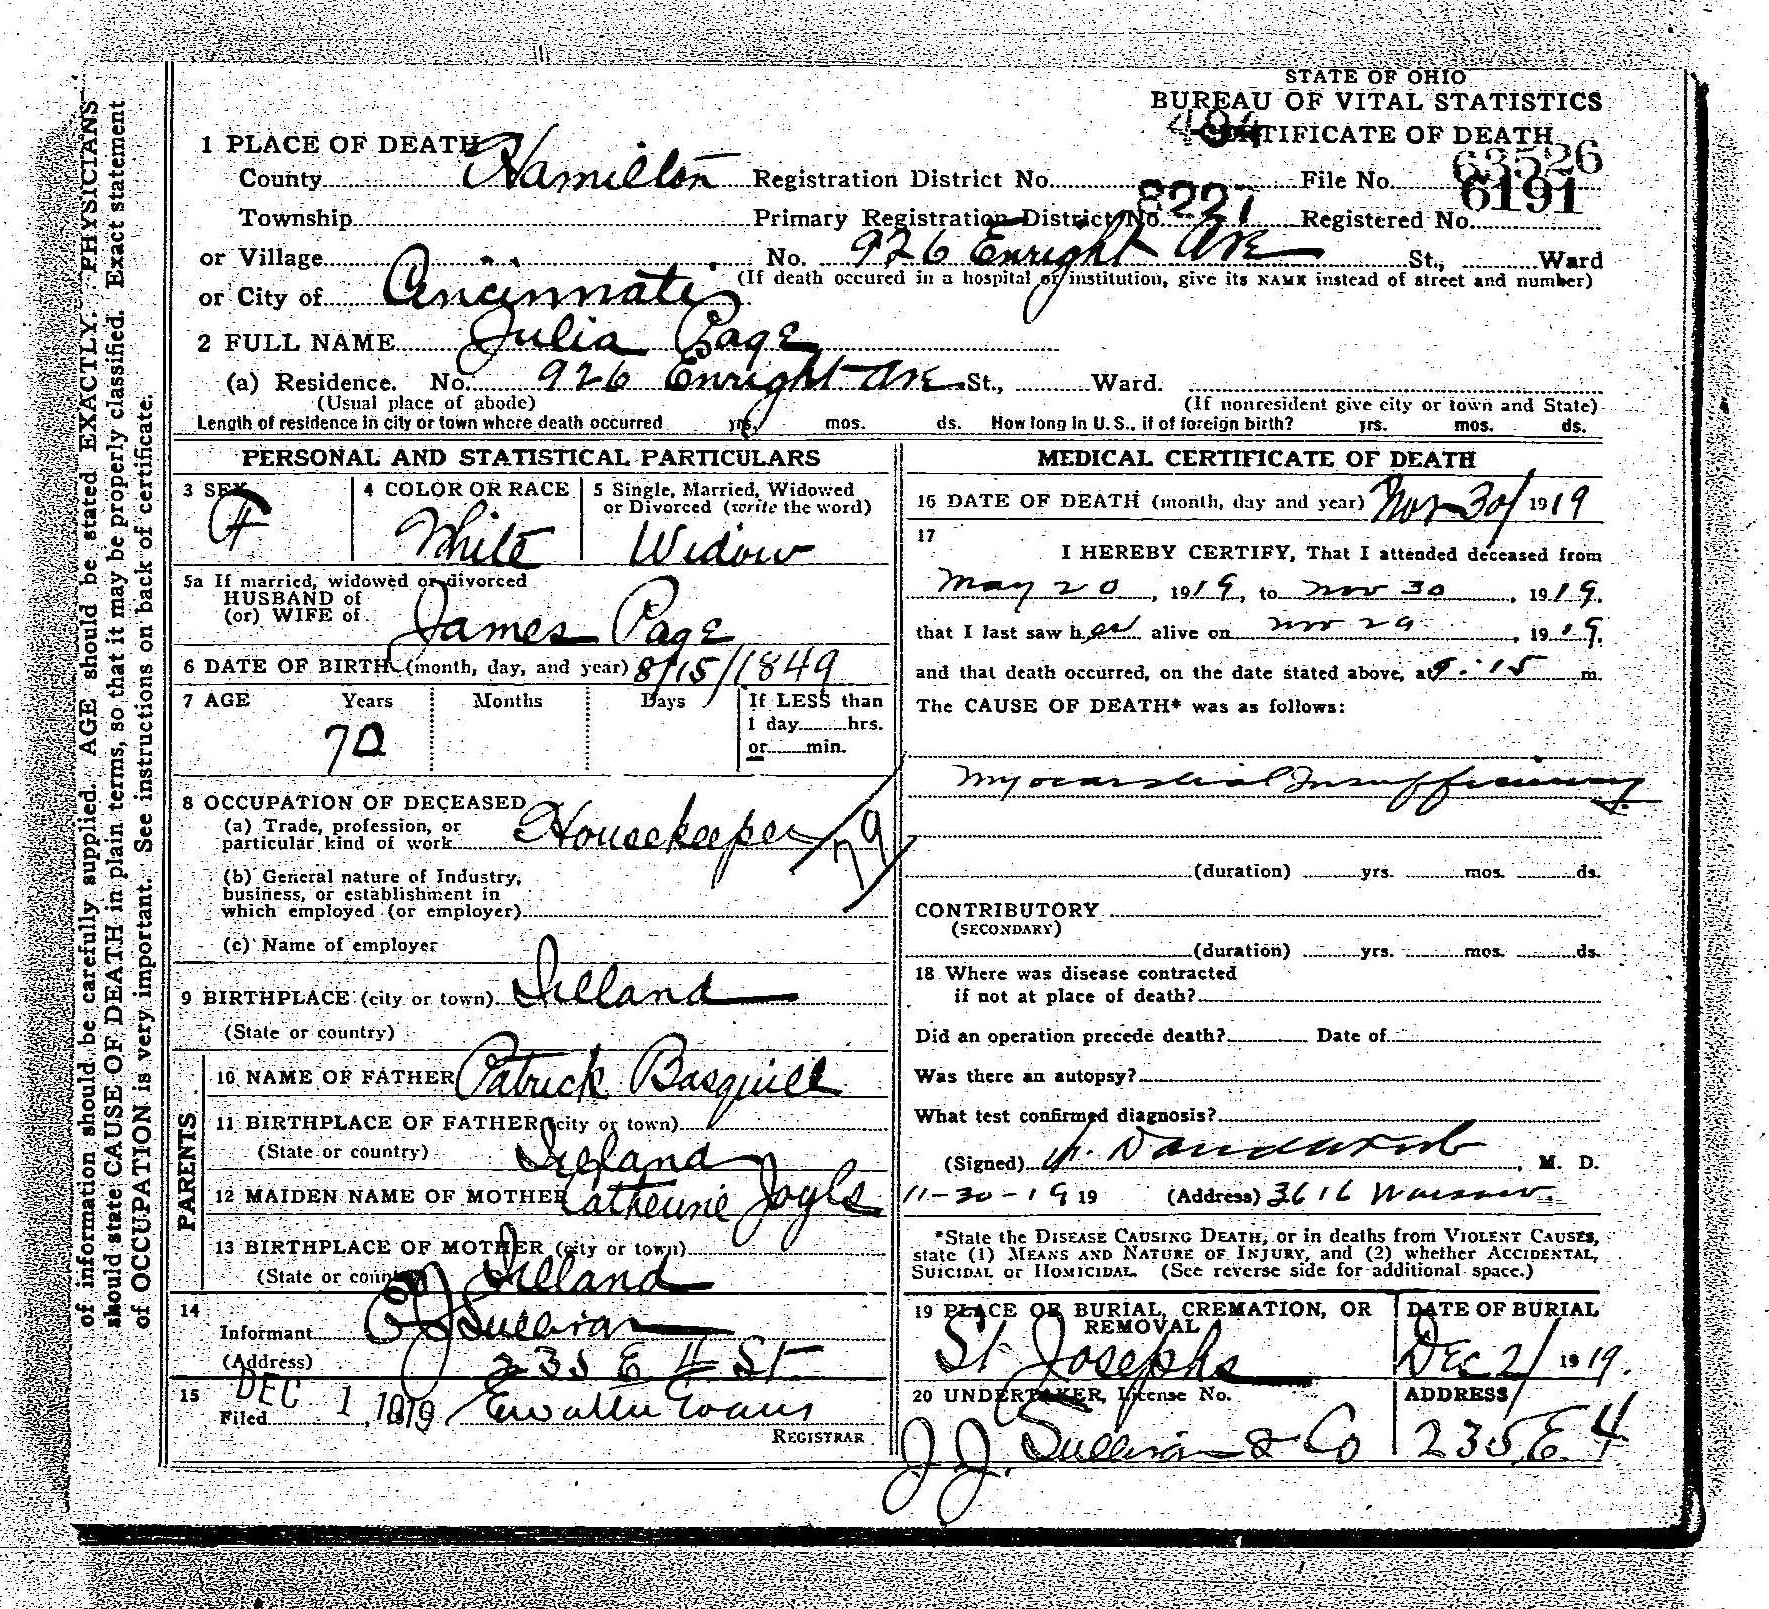 STATE OF OHIO
BUREAU OF VITAL STATISTICS
CERTIFICATE OF DEATH
1 PLACE OF DEATH
County Hamilton Registration District No. 494 File No. 63526
Township Primary Registration District No. 8227 Registered No. 6191
or Village No. 926 Enright Ave St., Ward
(If death occured in a hospital or institution, give its NAME instead of street and number)
or City of Cincinnati
2 FULL NAME Julia Page
(a) Residence. No. 926 Enright Ave St., Ward.
(Usual place of abode) (If nonresident give city or town and State)
Length of residence in city or town where death occurred yrs. mos. ds. How long in U. S., if of foreign birth? yrs. mos. ds.
PERSONAL AND STATISTICAL PARTICULARS
3 SEX 4 COLOR OR RACE 5 Single, Married, Widowed
or Divorced (write the word)
F White Widow
5a If married, widowed or divorced
HUSBAND of
(or) WIFE of James Page
6 DATE OF BIRTH (month, day, and year) 8/15/1849
7 AGE Years Months Days If LESS than
1 day hrs.
or min.
70
8 OCCUPATION OF DECEASED
(a) Trade, profession, or
particular kind of work Housekeeper
79
(b) General nature of Industry,
business, or establishment in
which employed (or employer)
(c) Name of employer
9 BIRTHPLACE (city or town) Ireland
(State or country)
PARENTS
10 NAME OF FATHER Patrick Basquill
11 BIRTHPLACE OF FATHER (city or town)
(State or country) Ireland
12 MAIDEN NAME OF MOTHER Catherine Joyle
13 BIRTHPLACE OF MOTHER (city or town)
(State or country) Ireland
14
Informant Sullivan
(Address) 235 E 4 St
15 DEC 1, 1919
Filed Evans
REGISTRAR
MEDICAL CERTIFICATE OF DEATH
16 DATE OF DEATH (month, day and year) Nov 30/ 1919
17
I HEREBY CERTIFY, That I attended deceased from
May 20, 1919, to Nov 30, 1919.
that I last saw her alive on Nov 29, 1919.
and that death occurred, on the date stated above, at 9:15 m.
The CAUSE OF DEATH* was as follows:
Myocardial Insufficiency
(duration) yrs. mos. ds.
CONTRIBUTORY
(SECONDARY)
(duration) yrs. mos. ds.
18 Where was disease contracted
if not at place of death?
Did an operation precede death? Date of
Was there an autopsy?
What test confirmed diagnosis?
(Signed) M. D.
11-30-19 19 (Address) 3616 Warsaw.
*State the DISEASE CAUSING DEATH, or in deaths from VIOLENT CAUSES,
state (1) MEANS AND NATURE OF INJURY, and (2) whether ACCIDENTAL,
SUICIDAL or HOMICIDAL. (See reverse side for additional space.)
19 PLACE OF BURIAL, CREMATION, OR
REMOVAL
DATE OF BURIAL
St Josephs Dec 2/ 1919.
20 UNDERTAKER, License No. ADDRESS
J. J. Sullivan & Co 235 E. 4
of information should be carefully supplied. AGE should be stated EXACTLY. PHYSICIANS
should state CAUSE OF DEATH in plain terms, so that it may be properly classified. Exact statement
of OCCUPATION is very important. See instructions on back of certificate.